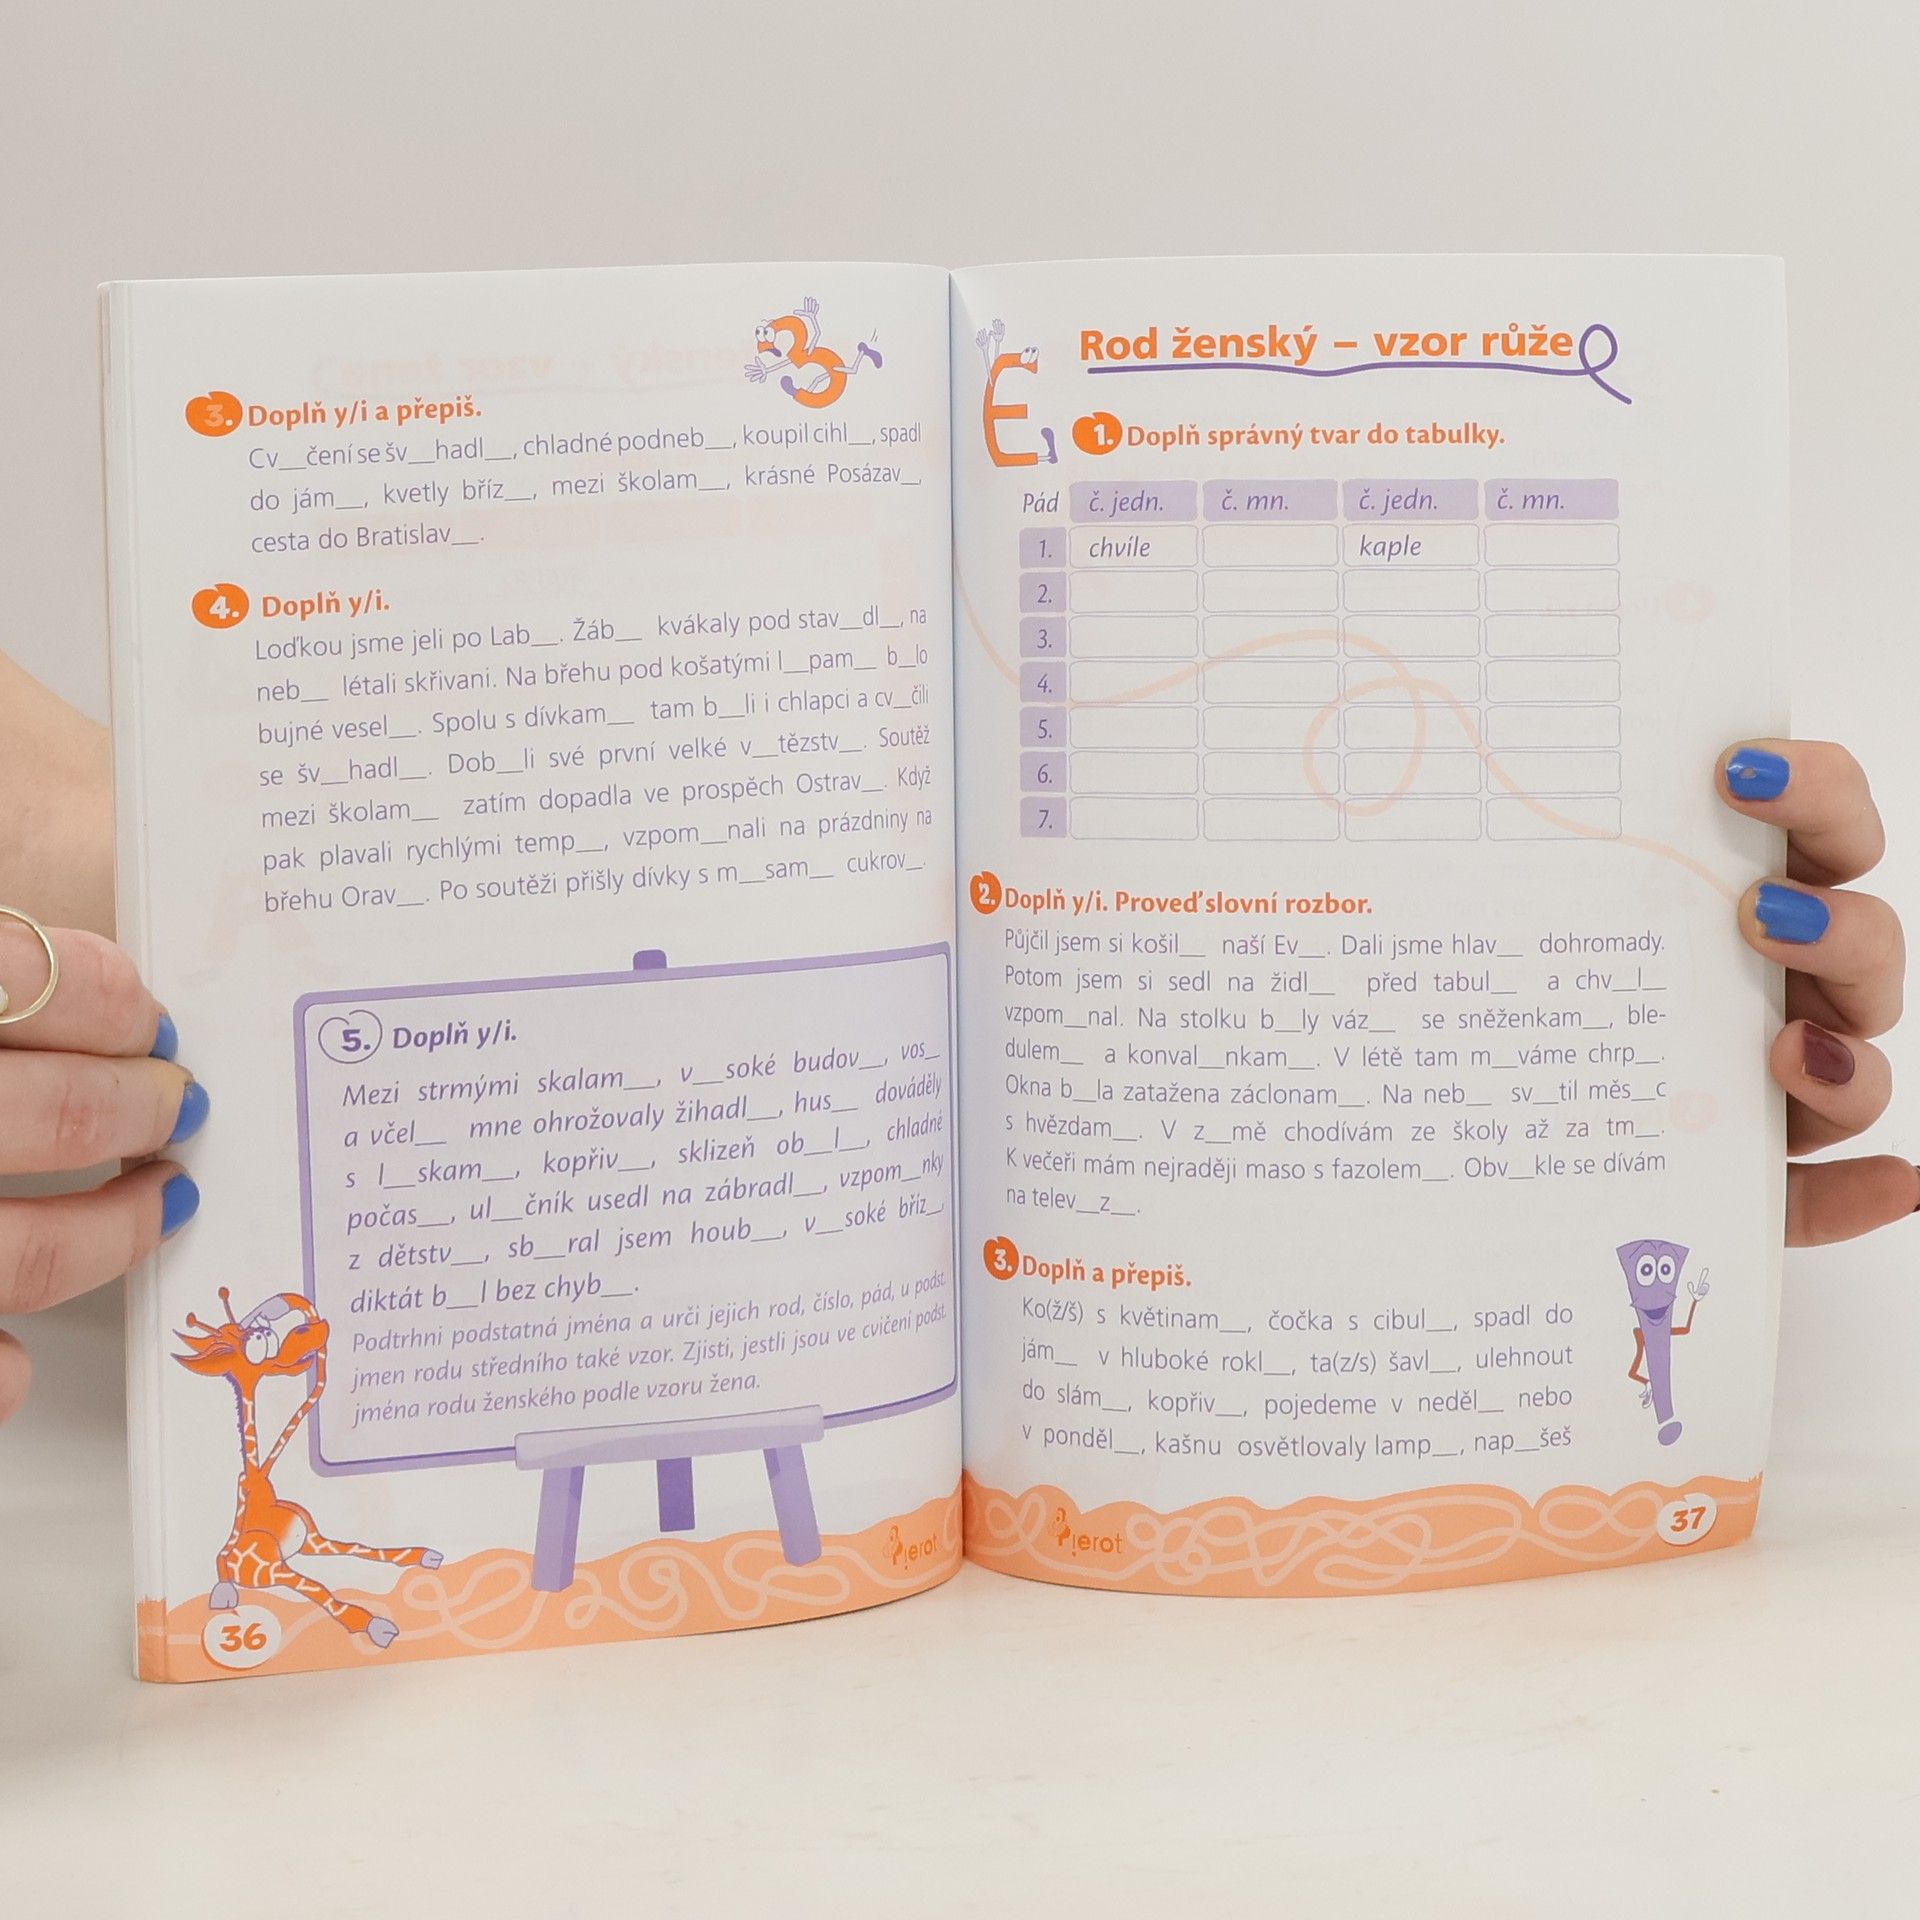 3. Doplň y/i a přepiš.
Cv__čení se šv__hadl__, chladné podneb__, koupil cihl__, spadl
do jám__, kvetly bříz__, mezi školam__, krásné Posázav__,
cesta do Bratislav__.
4. Doplň y/i.
Loďkou jsme jeli po Lab__. Žáb__ kvákaly pod stav__dl__, na
neb__ létali skřivani. Na břehu pod košatými l__pam__ b__lo
bujné vesel__. Spolu s dívkam__ tam b__li i chlapci a cv__čili
se šv__hadl__. Dob__li své první velké v__tězstv__. Soutěž
mezi školam__ zatím dopadla ve prospěch Ostrav__. Když
pak plavali rychlými temp__, vzpom__nali na prázdniny na
břehu Orav__. Po soutěži přišly dívky s m__sam__ cukrov__.
5. Doplň y/i.
Mezi strmými skalam__, v__soké budov__, vos__
a včel__ mne ohrožovaly žihadl__, hus__ dováděly
s l__skam__, kopřiv__, sklizeň ob__l__, chladné
počas__, ul__čník usedl na zábradl__, vzpom__nky
z dětstv__, sb__ral jsem houb__, v__soké bříz__,
diktát b__l bez chyb__.
Podtrhni podstatná jména a urči jejich rod, číslo, pád, u podst.
jmen rodu středního také vzor. Zjisti, jestli jsou ve cvičení podst.
jména rodu ženského podle vzoru žena.
Pierot
36
Rod ženský – vzor růže
1. Doplň správný tvar do tabulky.
Pád č. jedn. č. mn. č. jedn. č. mn.
1. chvíle kaple
2.
3.
4.
5.
6.
7.
2. Doplň y/i. Proveď slovní rozbor.
Půjčil jsem si košil__ naší Ev__. Dali jsme hlav__ dohromady.
Potom jsem si sedl na židl__ před tabul__ a chv__l__
vzpom__nal. Na stolku b__ly váz__ se sněženkam__, ble-
dulem__ a konval__nkam__. V létě tam m__váme chrp__.
Okna b__la zatažena záclonam__. Na neb__ sv__til měs__c
s hvězdam__. V z__mě chodívám ze školy až za tm__.
K večeři mám nejraději maso s fazolem__. Obv__kle se dívám
na telev__z__.
3. Doplň a přepiš.
Ko(ž/š) s květinam__, čočka s cibul__, spadl do
jám__ v hluboké rokl__, ta(z/s) šavl__, ulehnout
do slám__, kopřiv__, pojedeme v neděl__ nebo
v ponděl__, kašnu osvětlovaly lamp__, nap__šeš
Pierot
37